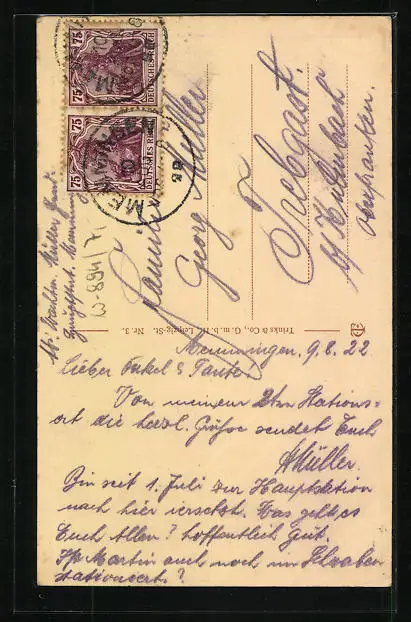 75 75
DEUTSCHES REICH
75 75
DEUTSCHES REICH
MEMMINGEN
Familie
Georg Müller
Seebgast.
b/ Kulmbach
Oberfranken.
Abs. Wachtm. Müller
W-894/71
Trinks & Co., G. m. b. H., Leipzig-St. Nr. 3.
Memmingen, 9.8.22
Lieber Onkel & Tante!
Von meinem 2ten Stations=
ort die herzl. Grüße sendet Euch
AMüller.
Bin seit 1. Juli zur Hauptstation
nach hier versetzt. Was geht's
Euch Allen? hoffentlich gut.
Ist Martin auch noch in
stationiert?